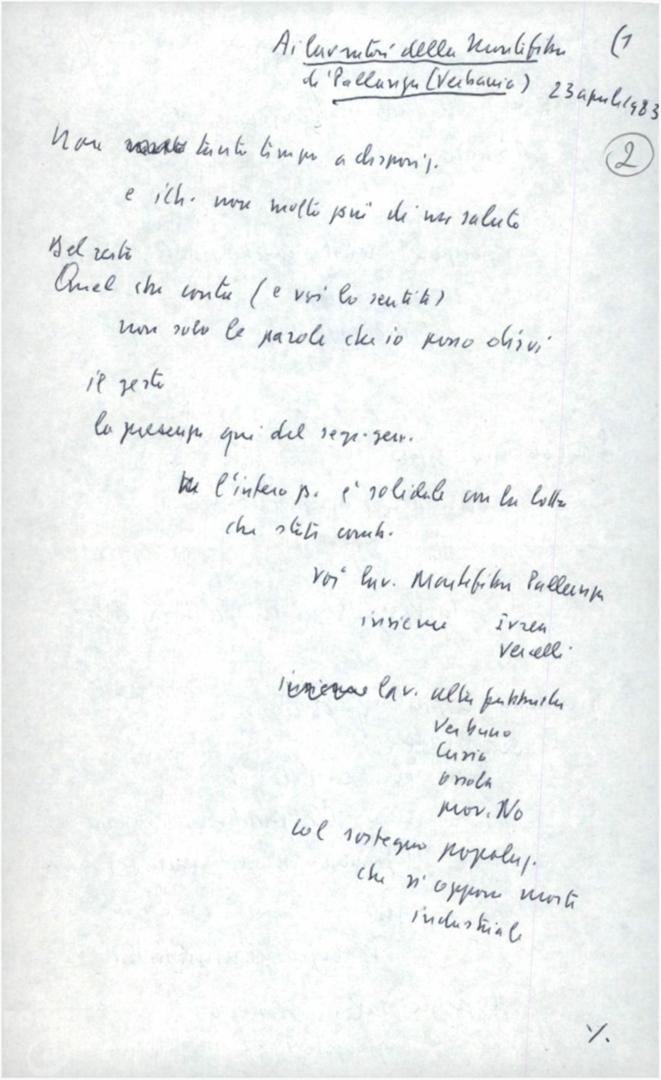 Ai lavoratori della Montefibre (1
di Pallanza (Verbania) 23 aprile 1983
2
Non tanto tempo a disposiz.
e ich. non molto più di un saluto
Del resto
Quel che conta (e voi lo sentite)
non solo le parole che io posso dirvi
il gesto
la presenza qui del segr. gen.
l'intero p. è solidale con la lotta
che state comb.
Voi lav. Montefibre Pallanza
insieme Ivrea
Vercelli
insieme lav. altre fabbriche
Verbano
Cusio
Ossola
prov. No
col sostegno popolaz.
che si oppone morte
industriale
%.